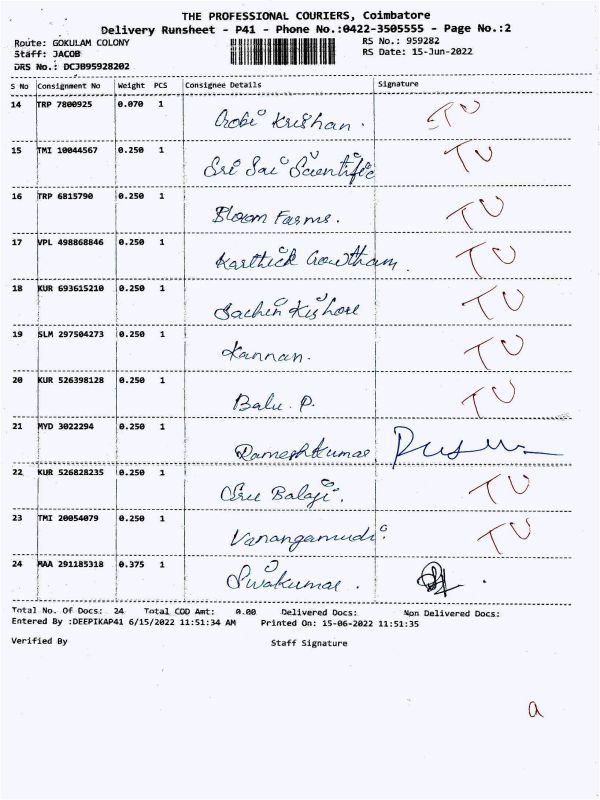 THE PROFESSIONAL COURIERS, Coimbatore
Delivery Runsheet - P41 - Phone No.:0422-3505555 - Page No.:2
Route: GOKULAM COLONY RS No.: 959282
Staff: JACOB RS Date: 15-Jun-2022
DRS No.: DCJB95928202
S No Consignment No Weight PCS Consignee Details Signature
14 TRP 7800925 0.070 1 Gobi Krishan. TU
15 TMI 10044567 0.250 1 Sri Sai Scientific TU
16 TRP 6815790 0.250 1 Bloom Farms. TU
17 VPL 498868846 0.250 1 Karthick Gowtham. TU
18 KUR 693615210 0.250 1 Sachin Kishore TU
19 SLM 297504273 0.250 1 Kannan. TU
20 KUR 526398128 0.250 1 Balu. P. TU
21 MYD 3022294 0.250 1 Rameshkumar
22 KUR 526828235 0.250 1 Sru Balaji. TU
23 TMI 20054079 0.250 1 Vanangamudi. TU
24 MAA 291185318 0.375 1 Sivakumar.
Total No. Of Docs: 24 Total COD Amt: 0.00 Delivered Docs: Non Delivered Docs:
Entered By :DEEPIKAP41 6/15/2022 11:51:34 AM Printed On: 15-06-2022 11:51:35
Verified By Staff Signature
a